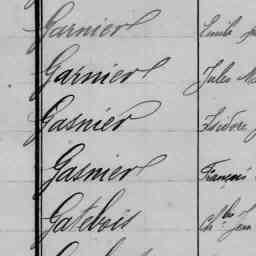 Garnier Emile
Garnier Jules
Gasnier Isidore
Gasnier François
Gatebois Ch.les Jean